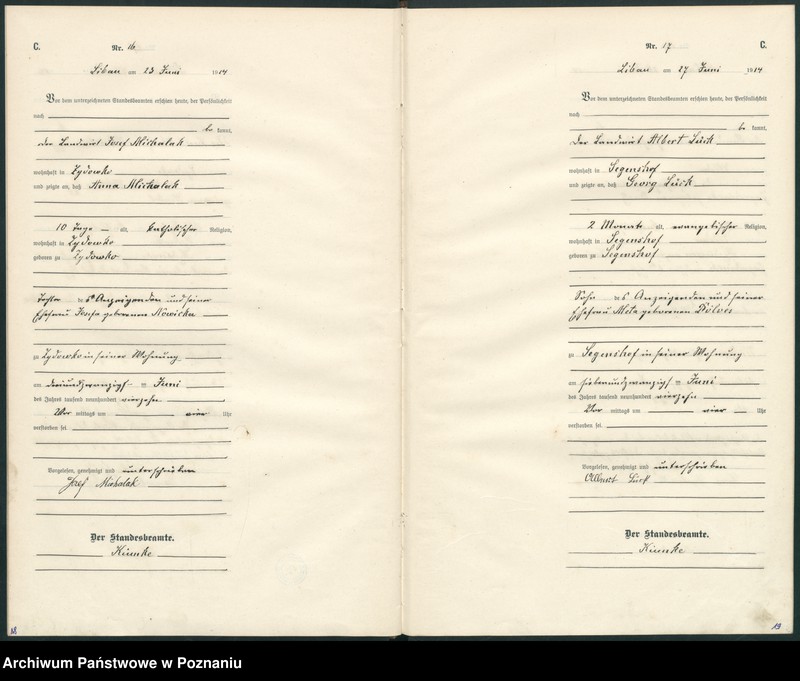 C.
Nr. 16
Libau am 23 Juni 1914
Vor dem unterzeichneten Standesbeamten erschien heute, der Persönlichkeit
nach
be kannt,
der Landwirt Josef Michalak
wohnhaft in Zydowko
und zeigte an, daß Anna Michalak
10 Tage alt, katholischer Religion,
wohnhaft in Zydowko
geboren zu Zydowko
Tochter des Anzeigenden und seiner
Ehefrau Josefa geborenen Nowicka
zu Zydowko in seiner Wohnung
am dreiundzwanzigsten Juni
des Jahres tausend neunhundert vierzehn
Vor mittags um vier Uhr
verstorben sei
Vorgelesen, genehmigt und unterschrieben
Josef Michalak
Der Standesbeamte.
18
Nr. 17
C.
Libau am 27 Juni 1914
Vor dem unterzeichneten Standesbeamten erschien heute, der Persönlichkeit
nach
be kannt,
der Landwirt Albert Lück
wohnhaft in Segenshof
und zeigte an, daß Georg Lück
2 Monate alt, evangelischer Religion,
wohnhaft in Segenshof
geboren zu Segenshof
Sohn des Anzeigenden und seiner
Ehefrau Meta geborenen
zu Segenshof in seiner Wohnung
am siebenundzwanzigsten Juni
des Jahres tausend neunhundert vierzehn
Vor mittags um vier Uhr
verstorben sei
Vorgelesen, genehmigt und unterschrieben
Albert Lück
Der Standesbeamte.
19
Archiwum Państwowe w Poznaniu